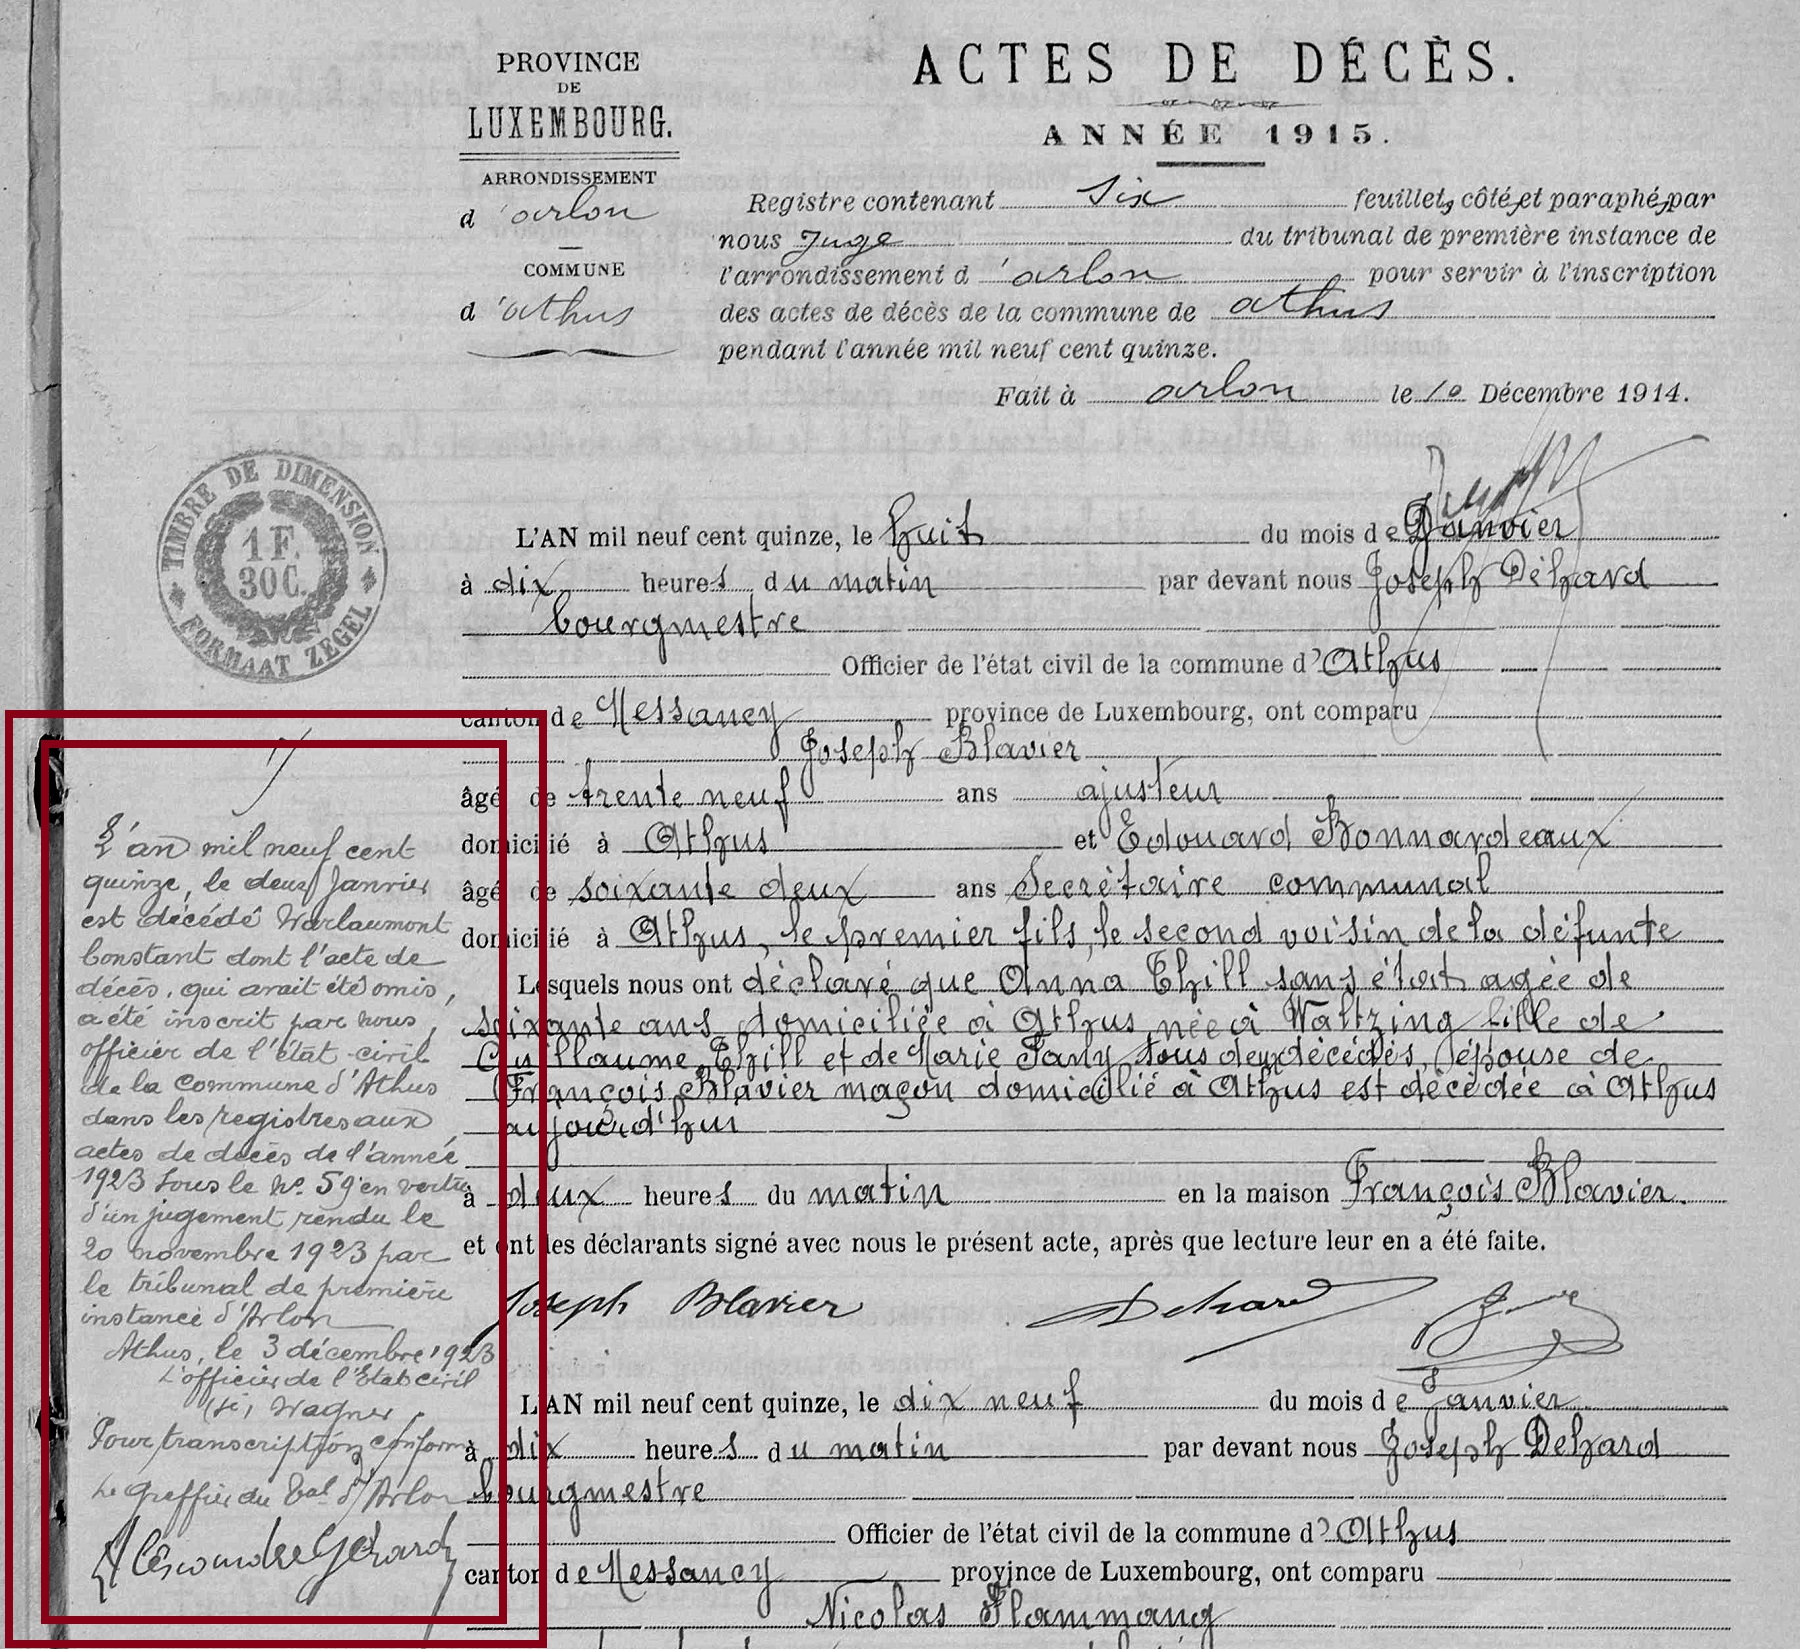 PROVINCE
DE
LUXEMBOURG.
ARRONDISSEMENT
d 'arlon
COMMUNE
d 'athus
ACTES DE DÉCÈS.
ANNÉE 1915.
Registre contenant six feuillets, côté et paraphé, par
nous Juge du tribunal de première instance de
l'arrondissement d 'arlon pour servir à l'inscription
des actes de décès de la commune de athus
pendant l'année mil neuf cent quinze.
Fait à arlon le 10 Décembre 1914.
TIMBRE DE DIMENSION
1 F.
30 C.
FORMAAT ZEGEL
L'AN mil neuf cent quinze, le huit du mois de Janvier
à dix heures du matin par devant nous Joseph Déhard
bourgmestre
Officier de l'état civil de la commune d'Athus
canton de Messancy province de Luxembourg, ont comparu
Joseph Blavier
âgé de trente neuf ans ajusteur
domicilié à Athus et Edouard Bonnardeaux
âgé de soixante deux ans Secrétaire communal
domicilié à Athus, le premier fils, le second voisin de la défunte
Lesquels nous ont déclaré que Anna Thill sans état agée de
soixante ans domiciliée à Athus, née à Waltzing fille de
Guillaume Thill et de Marie Fany tous deux décédés, épouse de
François Blavier maçon domicilié à Athus est décédée à Athus
aujourd'hui
à deux heures du matin en la maison François Blavier.
et ont les déclarants signé avec nous le présent acte, après que lecture leur en a été faite.
Joseph Blavier Dehard
L'an mil neuf cent
quinze, le deux Janvier
est décédé Warlaumont
Constant dont l'acte de
décès, qui avait été omis,
a été inscrit par nous,
officier de l'état-civil
de la commune d'Athus
dans les registres aux
actes de décès de l'année
1923 sous le No. 59 en vertu
d'un jugement rendu le
20 novembre 1923 par
le tribunal de première
instance d'Arlon
Athus, le 3 décembre 1923
L'officier de l'Etat civil
(sé) Wagner
Pour transcription conforme
Le Greffier du Bal d'Arlon
Alexandre Gérard
L'AN mil neuf cent quinze, le dix neuf du mois de Janvier
à dix heures du matin par devant nous Joseph Dehard
bourgmestre
Officier de l'état civil de la commune d'Athus
canton de Messancy province de Luxembourg, ont comparu
Nicolas Flammang